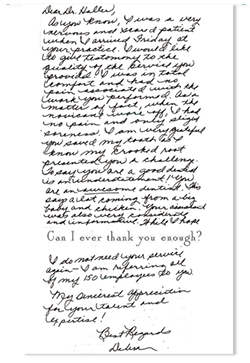 Dear Dr. Haller,
As you know, I was a very
nervous and scared patient
when I arrived Friday at
your practice. I would like
to give testimony to the
quality of the service you
provided. I was in total
comfort and had no
pain associated with the
work you performed. As a
matter of fact, when the
novicane wore off, I had
no pain and only slight
soreness. I am very grateful
you saved my tooth as I
know my crooked root
presented you a challenge.
To say you are a good dentist
is an understatement! You
are an awesome dentist. This
says a lot coming from a big
baby and chicken. Your assistant
was also very considerate
and informative. While I hope
Can I ever thank you enough?
I do not need your service
again - I am referring all
of my 150 employees to you.
My sincerest appreciation
for your talent and
expertise!
Best Regards
Debra